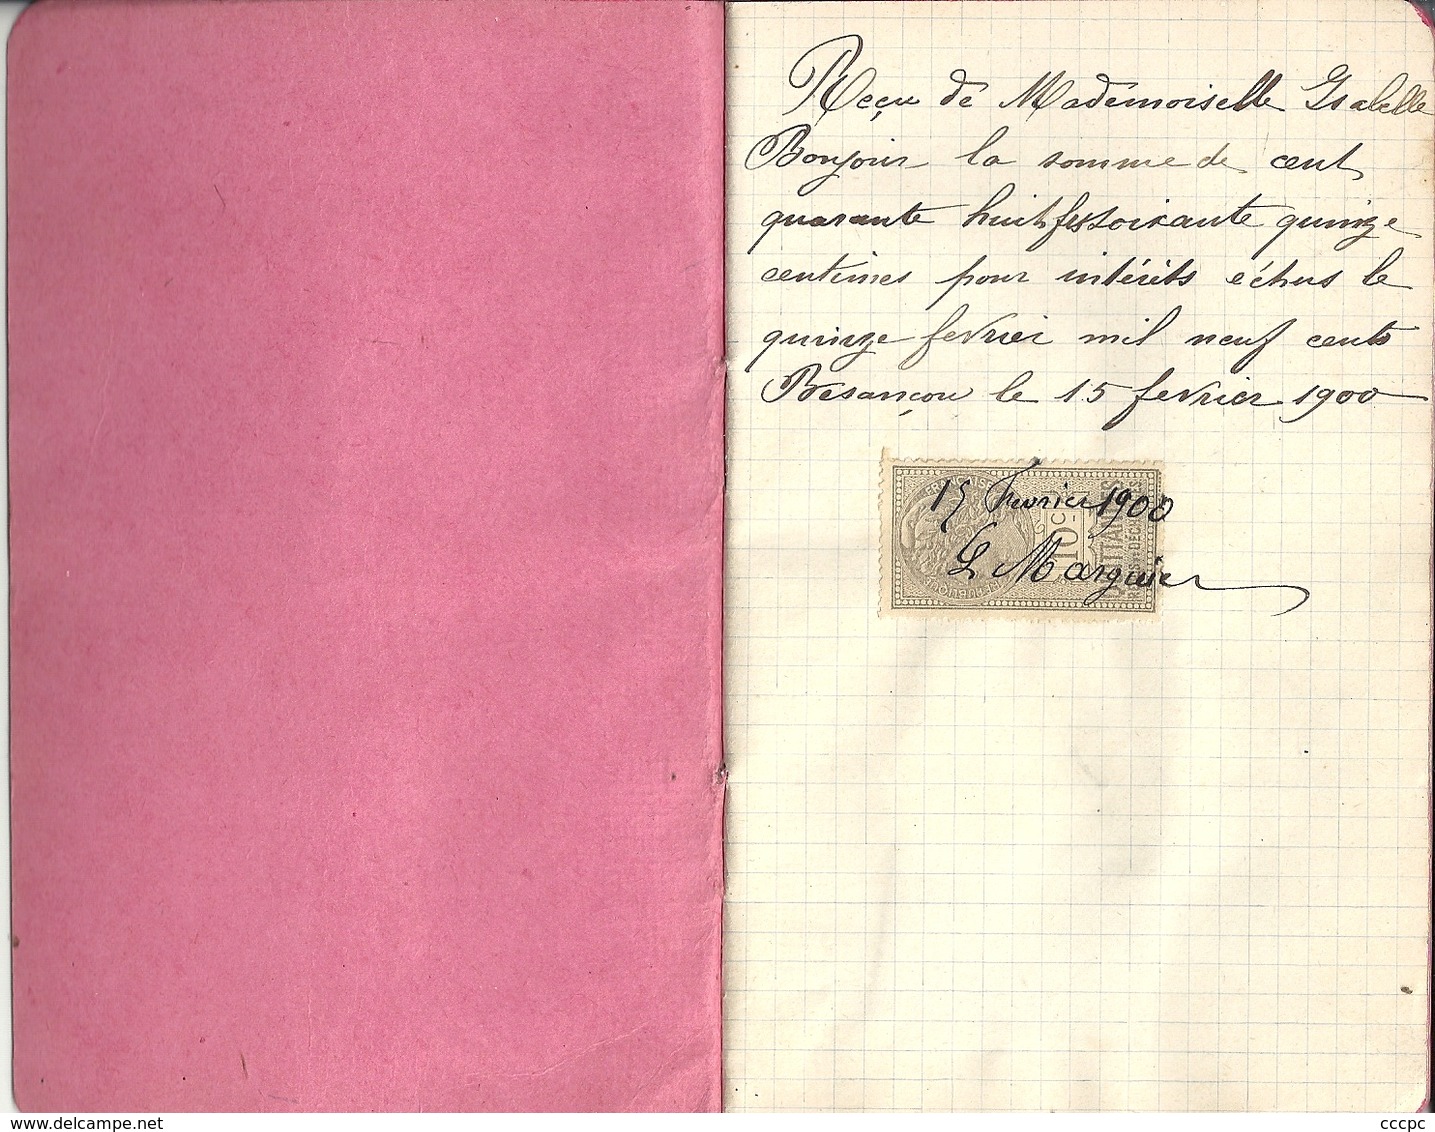 Reçu de Mademoiselle Isabelle
Bonjour la somme de cent
quarante huit f soixante quinze
centimes pour intérêts échus le
quinze fevrier mil neuf cents
Besançon le 15 fevrier 1900
15 Fevrier 1900
L Marguier
10 C
QUITTANCES
www.delcampe.net
cccpc